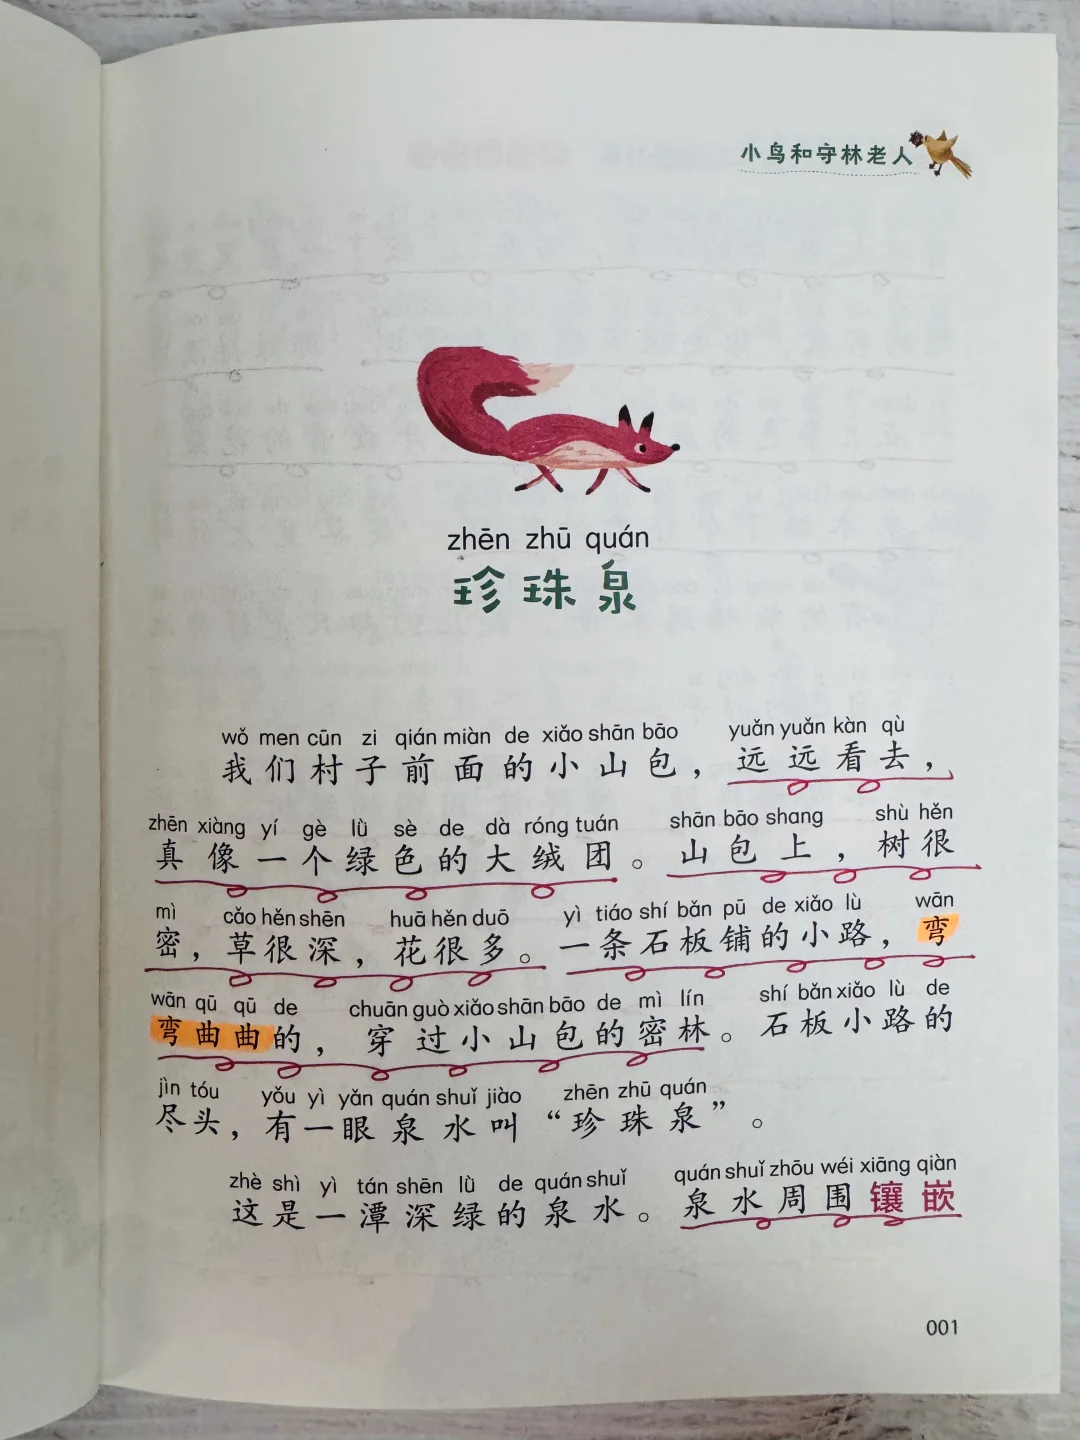 小鸟和守林老人
zhēn zhū quán
珍珠泉
wǒ men cūn zi qián miàn de xiǎo shān bāo yuǎn yuǎn kàn qù
我们村子前面的小山包，远远看去，
zhēn xiàng yí gè lǜ sè de dà róng tuán shān bāo shang shù hěn
真像一个绿色的大绒团。山包上，树很
mì cǎo hěn shēn huā hěn duō yì tiáo shí bǎn pū de xiǎo lù wān
密，草很深，花很多。一条石板铺的小路，弯
wān qū qū de chuān guò xiǎo shān bāo de mì lín shí bǎn xiǎo lù de
弯曲曲的，穿过小山包的密林。石板小路的
jìn tóu yǒu yì yǎn quán shuǐ jiào zhēn zhū quán
尽头，有一眼泉水叫“珍珠泉”。
zhè shì yì tán shēn lǜ de quán shuǐ quán shuǐ zhōu wéi xiāng qiàn
这是一潭深绿的泉水。泉水周围镶嵌
001